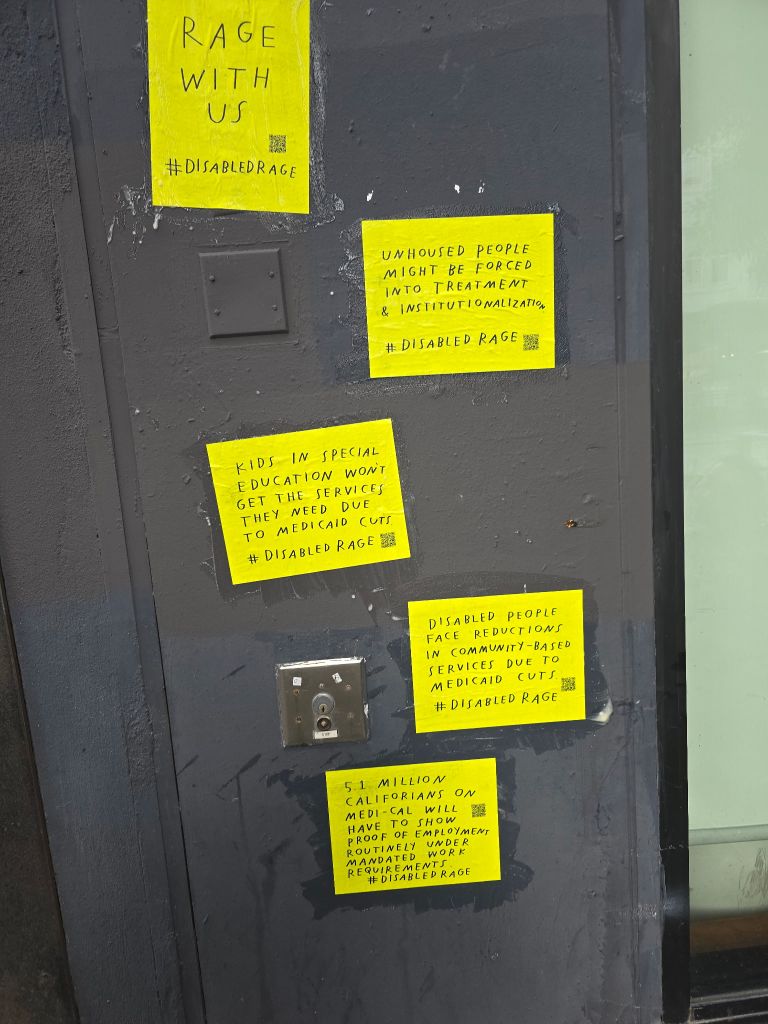 RAGE
WITH
US
#DISABLEDRAGE
UNHOUSED PEOPLE
MIGHT BE FORCED
INTO TREATMENT
& INSTITUTIONALIZATION
#DISABLED RAGE
KIDS IN SPECIAL
EDUCATION WON'T
GET THE SERVICES
THEY NEED DUE
TO MEDICAID CUTS
#DISABLED RAGE
DISABLED PEOPLE
FACE REDUCTIONS
IN COMMUNITY-BASED
SERVICES DUE TO
MEDICAID CUTS.
#DISABLED RAGE
5.1 MILLION
CALIFORIANS ON
MEDI-CAL WILL
HAVE TO SHOW
PROOF OF EMPLOYMENT
ROUTINELY UNDER
MANDATED WORK
REQUIREMENTS.
#DISABLEDRAGE